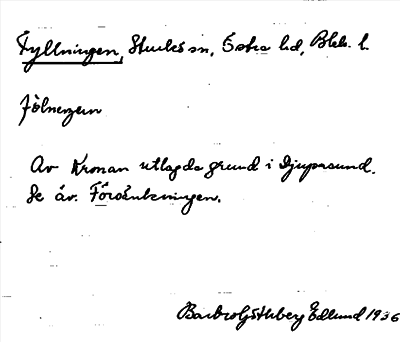 Fyllningen, Sturkö sn, Östra hd, Blek. l.
Fölnezern
Av Kronan utlagda grund i Djupasund.
Se äv. Försänkningen.
Barbro Göthberg Edlund 1936